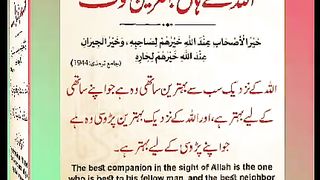 اللہ کے ہاں بہترین لوگ
خَيْرُ الْأَصْحَابِ عِنْدَ اللهِ خَيْرُهُمْ لِصَاحِبِهِ، وَخَيْرُ الْجِيرَانِ
عِنْدَ اللهِ خَيْرُهُمْ لِجَارِهِ (جامع ترمذی:1944)
اللہ کے نزدیک سب سے بہترین ساتھی وہ ہے جو اپنے ساتھی
کے لیے بہتر ہے، اور اللہ کے نزدیک بہترین پڑوسی وہ ہے
جو اپنے پڑوسی کے لیے بہتر ہے۔
The best companion in the sight of Allah is the one
who is best to his fellow man, and the best neighbor